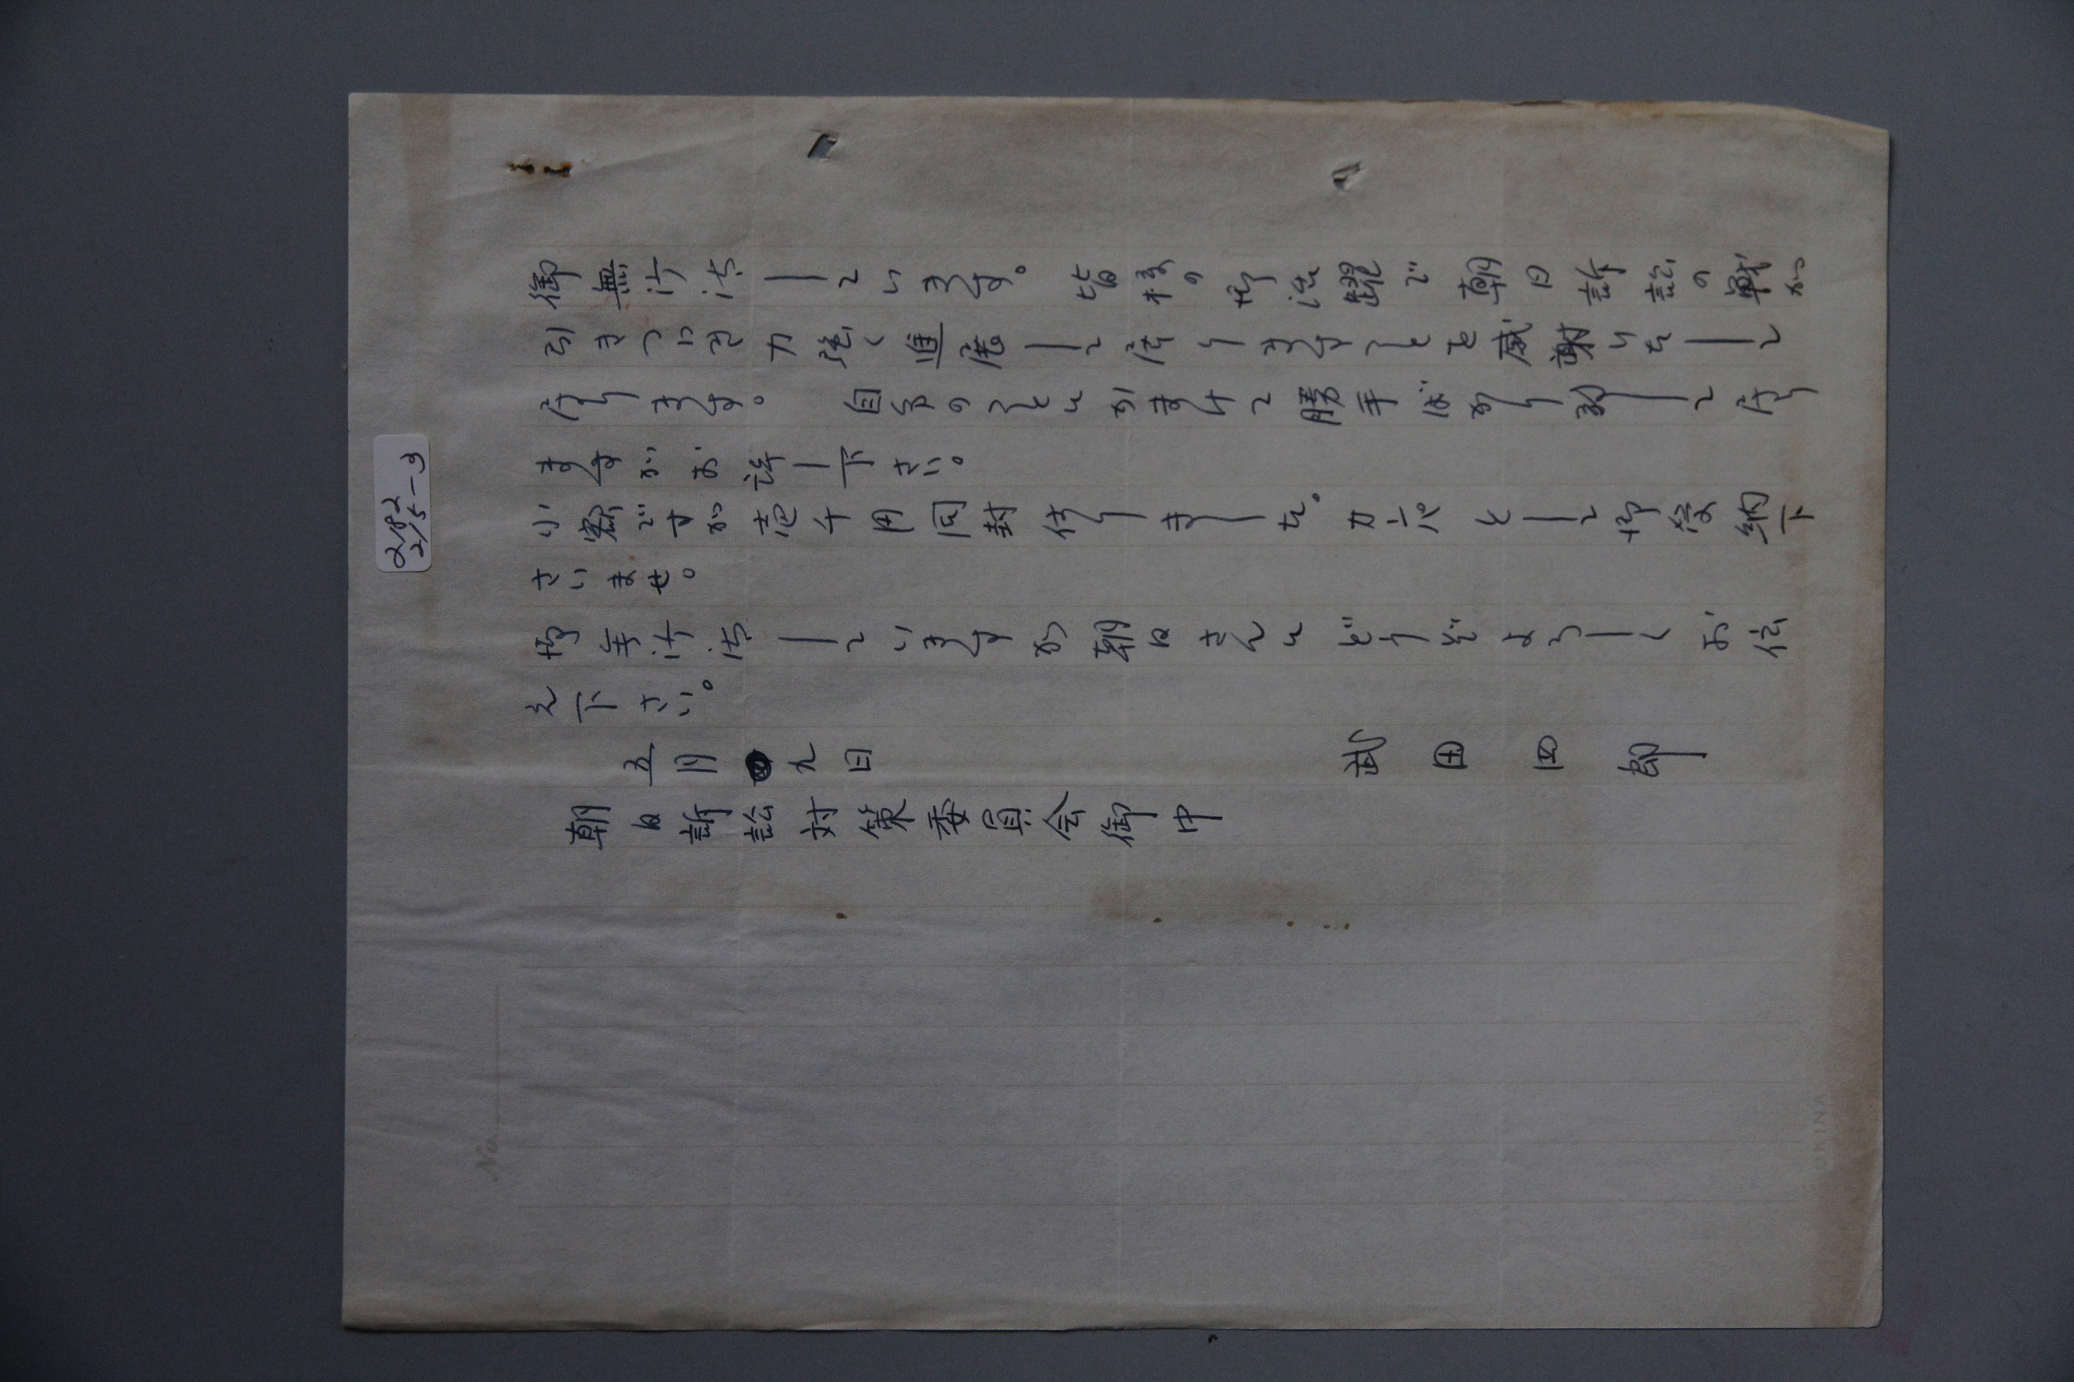 2182
2/5-3
御無沙汰しています。皆様の御活躍で朝日訴訟の戦が
引きつづき力強く進展して居りますことを感謝いたして
居ります。自分のことにかまけて勝手ばかり致して居り
ますがお許し下さい。
小額ですが壱千円同封仕りました。カンパとして御受納下
さいませ。
御無沙汰していますが朝日さんにどうぞよろしくお伝
え下さい。
五月九日 武田四郎
朝日訴訟対策委員会御中
No.
OKINA